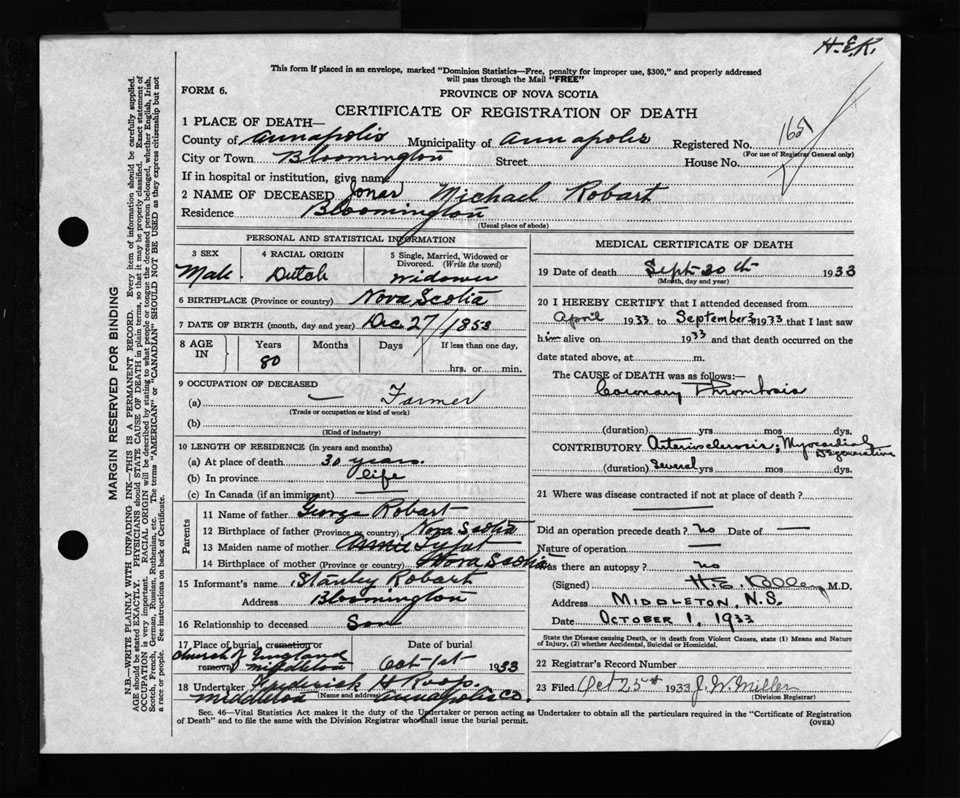 H.E.K.
This form if placed in an envelope, marked "Dominion Statistics—Free, penalty for improper use, $300," and properly addressed
will pass through the Mail "FREE"
FORM 6.
PROVINCE OF NOVA SCOTIA
CERTIFICATE OF REGISTRATION OF DEATH
1 PLACE OF DEATH—
County of Annapolis Municipality of Annapolis Registered No.
(For use of Registrar General only)
City or Town Bloomington Street House No.
If in hospital or institution, give name
2 NAME OF DECEASED Jones Michael Robart
Residence Bloomington
(Usual place of abode)
PERSONAL AND STATISTICAL INFORMATION
3 SEX 4 RACIAL ORIGIN 5 Single, Married, Widowed or Divorced. (Write the word)
Male Dutch Widower
6 BIRTHPLACE (Province or country) Nova Scotia
7 DATE OF BIRTH (month, day and year) Dec 27/1853
8 AGE IN Years Months Days If less than one day,
80 hrs. or min.
9 OCCUPATION OF DECEASED
(a) — Farmer
(Trade or occupation or kind of work)
(b)
(Kind of industry)
10 LENGTH OF RESIDENCE (in years and months)
(a) At place of death 30 years
(b) In province life
(c) In Canada (if an immigrant) —
Parents
11 Name of father George Robart
12 Birthplace of father (Province or country) Nova Scotia
13 Maiden name of mother
14 Birthplace of mother (Province or country) Nova Scotia
15 Informant's name Stanley Robart
Address Bloomington
16 Relationship to deceased Son
17 Place of burial, cremation or removal Date of burial
Church of England
Middleton Oct-1st 1933
18 Undertaker Frederick H Roop
(Name and address)
Middleton Annapolis Co.
MEDICAL CERTIFICATE OF DEATH
19 Date of death Sept-30th 1933
(Month, day and year)
20 I HEREBY CERTIFY that I attended deceased from
April 1933 to September 30 1933 that I last saw
him alive on 1933 and that death occurred on the
date stated above, at m.
The CAUSE of DEATH was as follows:—
Coronary Thrombosis
(duration) yrs mos dys.
CONTRIBUTORY Arteriosclerosis; Myocardial
Degeneration
(duration) Several yrs mos dys.
21 Where was disease contracted if not at place of death?
Did an operation precede death? No Date of —
Nature of operation —
Was there an autopsy? No
(Signed) H.E. Kelley M.D.
Address MIDDLETON, N.S.
Date OCTOBER 1, 1933
State the Disease causing Death, or in death from Violent Causes, state (1) Means and Nature
of Injury, (2) whether Accidental, Suicidal or Homicidal.
22 Registrar's Record Number
23 Filed Oct 25th 1933 J. W. Miller
(Division Registrar)
Sec. 46—Vital Statistics Act makes it the duty of the Undertaker or person acting as Undertaker to obtain all the particulars required in the "Certificate of Registration
of Death" and to file the same with the Division Registrar who shall issue the burial permit.
(OVER)
MARGIN RESERVED FOR BINDING
N.B.—WRITE PLAINLY WITH UNFADING INK—THIS IS A PERMANENT RECORD. Every item of information should be carefully supplied.
AGE should be stated EXACTLY. PHYSICIANS should STATE CAUSE OF DEATH in plain terms, so that it may be properly classified. Exact statement of
OCCUPATION is very important. RACIAL ORIGIN will be described by stating to what people or tongue the deceased person belonged, whether English, Irish,
Scotch, French, German, Russian, Ruthenian, etc. The terms "AMERICAN" or "CANADIAN" SHOULD NOT BE USED as they express citizenship but not
a race or people. See instructions on back of Certificate.